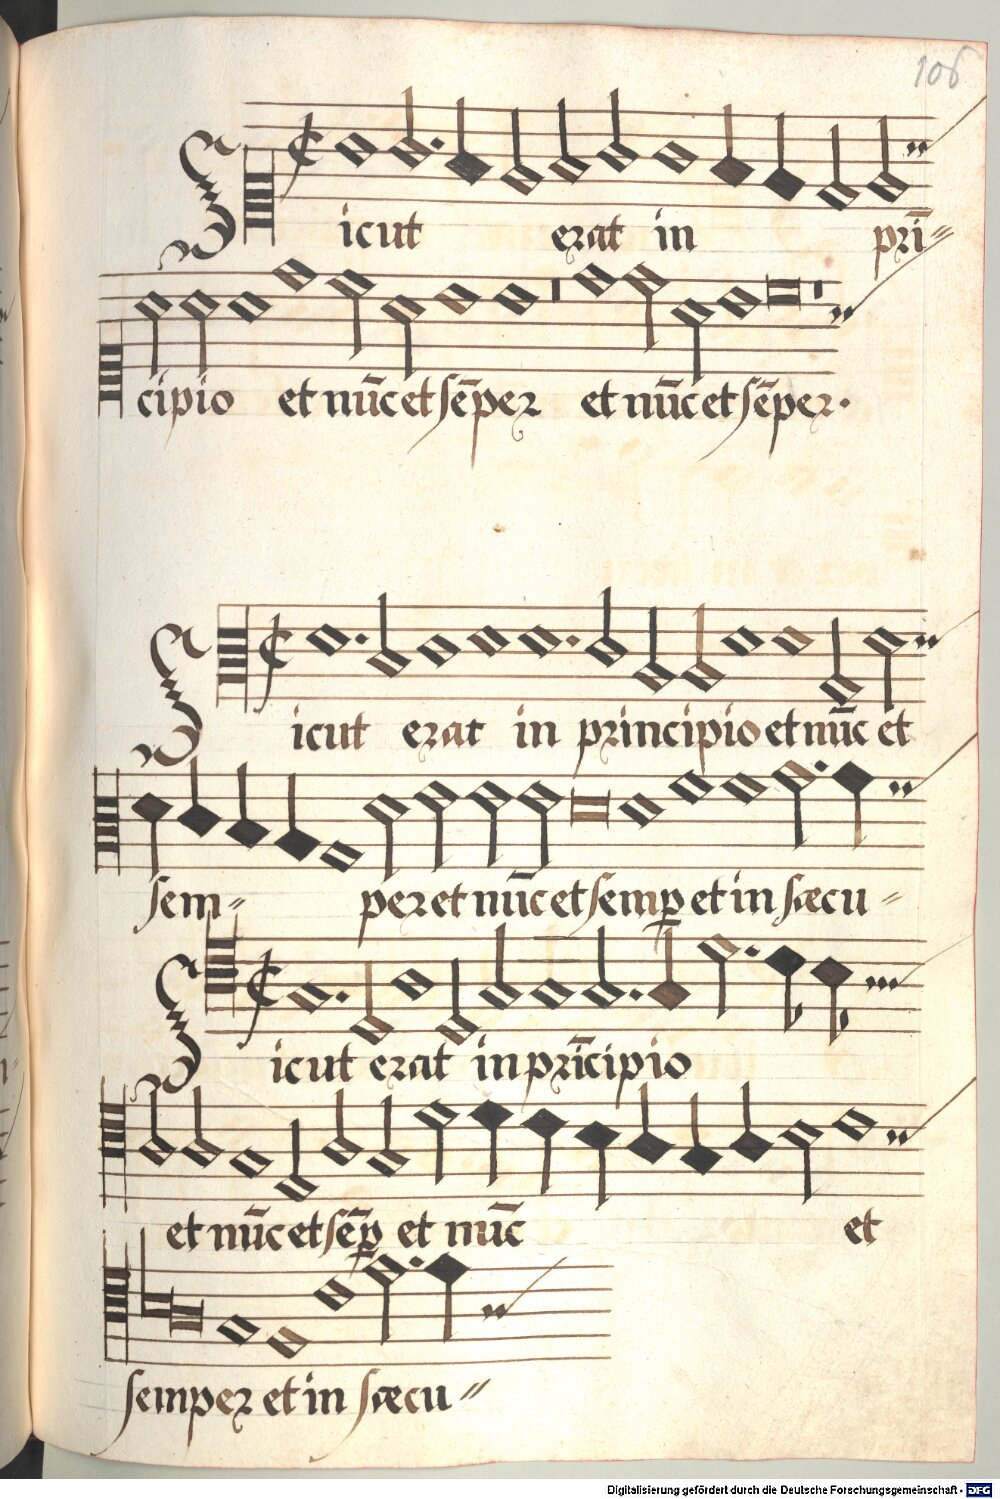 106
Sicut erat in prī=
cipio et nūc et sēper et nūc et sēper.
Sicut erat in principio et nūc et
sem= per et nūc et semp̲ et in sæcu =
Sicut erat in prīcipio
et nūc et sēp̲ et nūc et
semper et in sæcu =
Digitalisierung gefördert durch die Deutsche Forschungsgemeinschaft - DFG